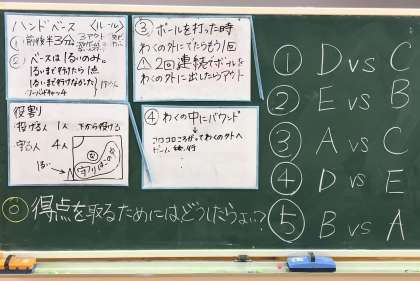 ハンドベース 〈ルール〉
① 前後半3分
3アウト
② ベースは1るいのみ。
1るいまで行けたら1点
1るいまで行けなかった
役割
投げる人 1人 下から投げる
守る人 4人
1るい
③ ボールを打った時
わくの外にでたらもう1回
⚠ 2回連続でボールを
わくの外に出したらアウト
④ わくの中にバウンド
↓
コロコロころがってわくの外へ
① D vs C
② E vs B
③ A vs C
④ D vs E
⑤ B vs A
得点を取るためにはどうしたらよい?